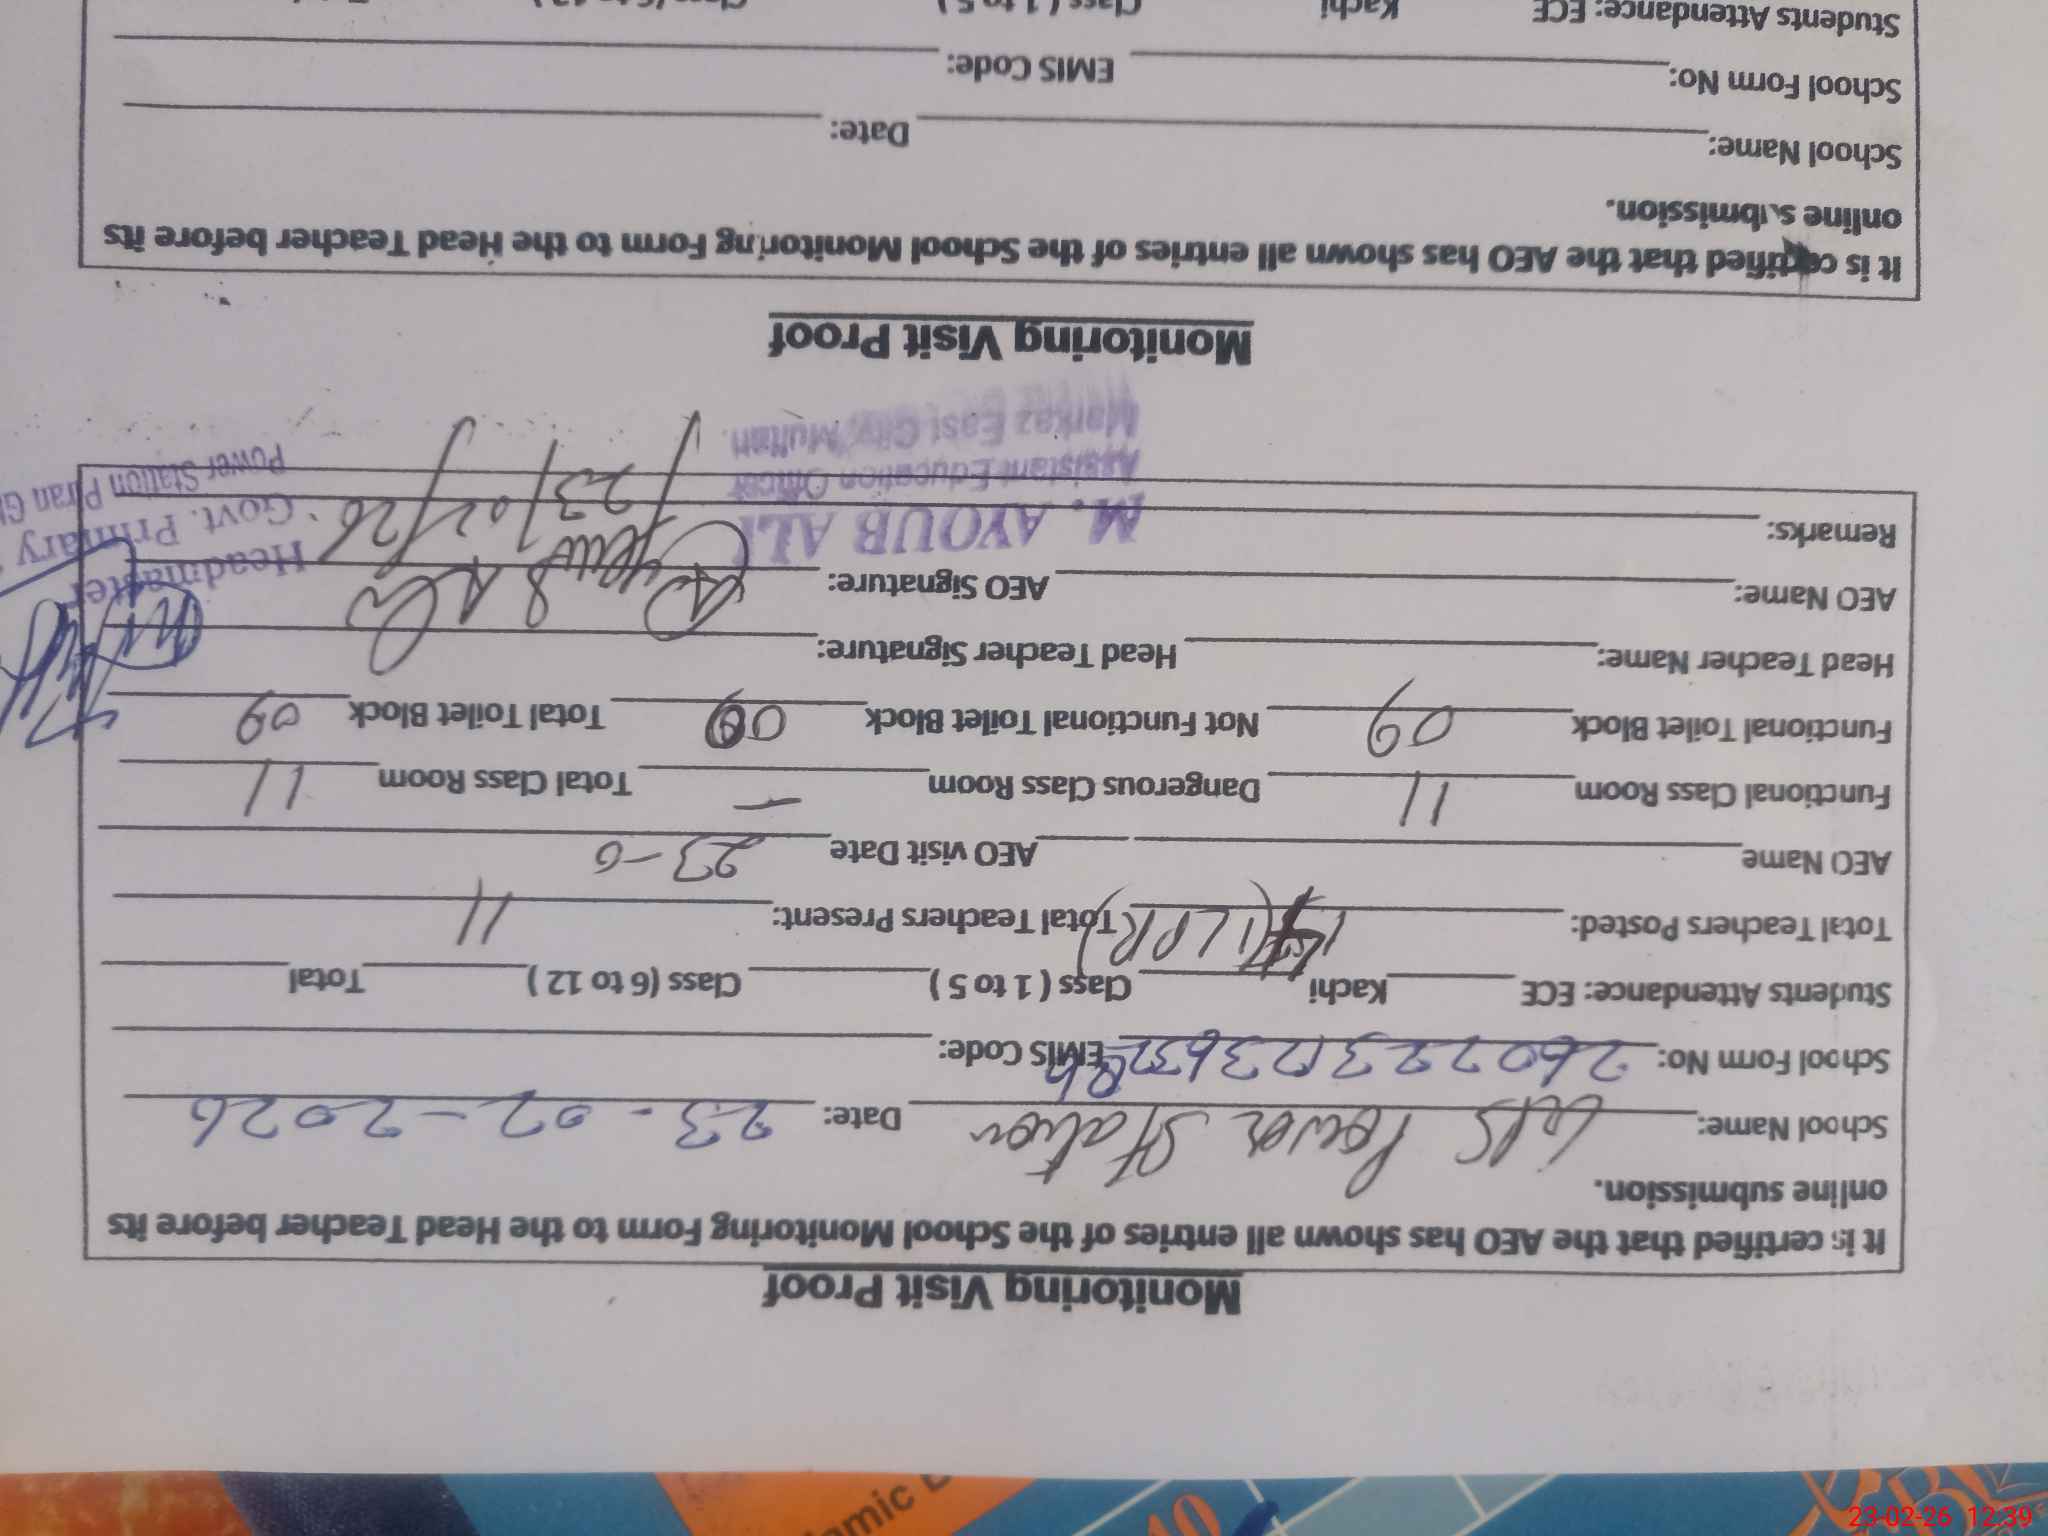 Monitoring Visit Proof
It is certified that the AEO has shown all entries of the School Monitoring Form to the Head Teacher before its
online submission.
School Name: GPS Power Station Date: 23-02-2026
School Form No: EMIS Code:
Students Attendance: ECE Kachi Class ( 1 to 5 ) Class (6 to 12 ) Total
Total Teachers Posted: (1LPR) Total Teachers Present: 11
AEO Name AEO visit Date 23-0
Functional Class Room 11 Dangerous Class Room — Total Class Room 11
Functional Toilet Block 09 Not Functional Toilet Block Total Toilet Block 09
Head Teacher Name: Head Teacher Signature:
AEO Name: AEO Signature:
Remarks: 23/02/26
M. AYOUB ALI
Assistant Education Officer
Markaz East City, Multan.
Headmaster
Govt. Primary
Power Station Piran
Monitoring Visit Proof
It is certified that the AEO has shown all entries of the School Monitoring Form to the Head Teacher before its
online submission.
School Name: Date:
School Form No: EMIS Code:
Students Attendance: ECE Kachi Class ( 1 to 5 )
23-02-26 12:39